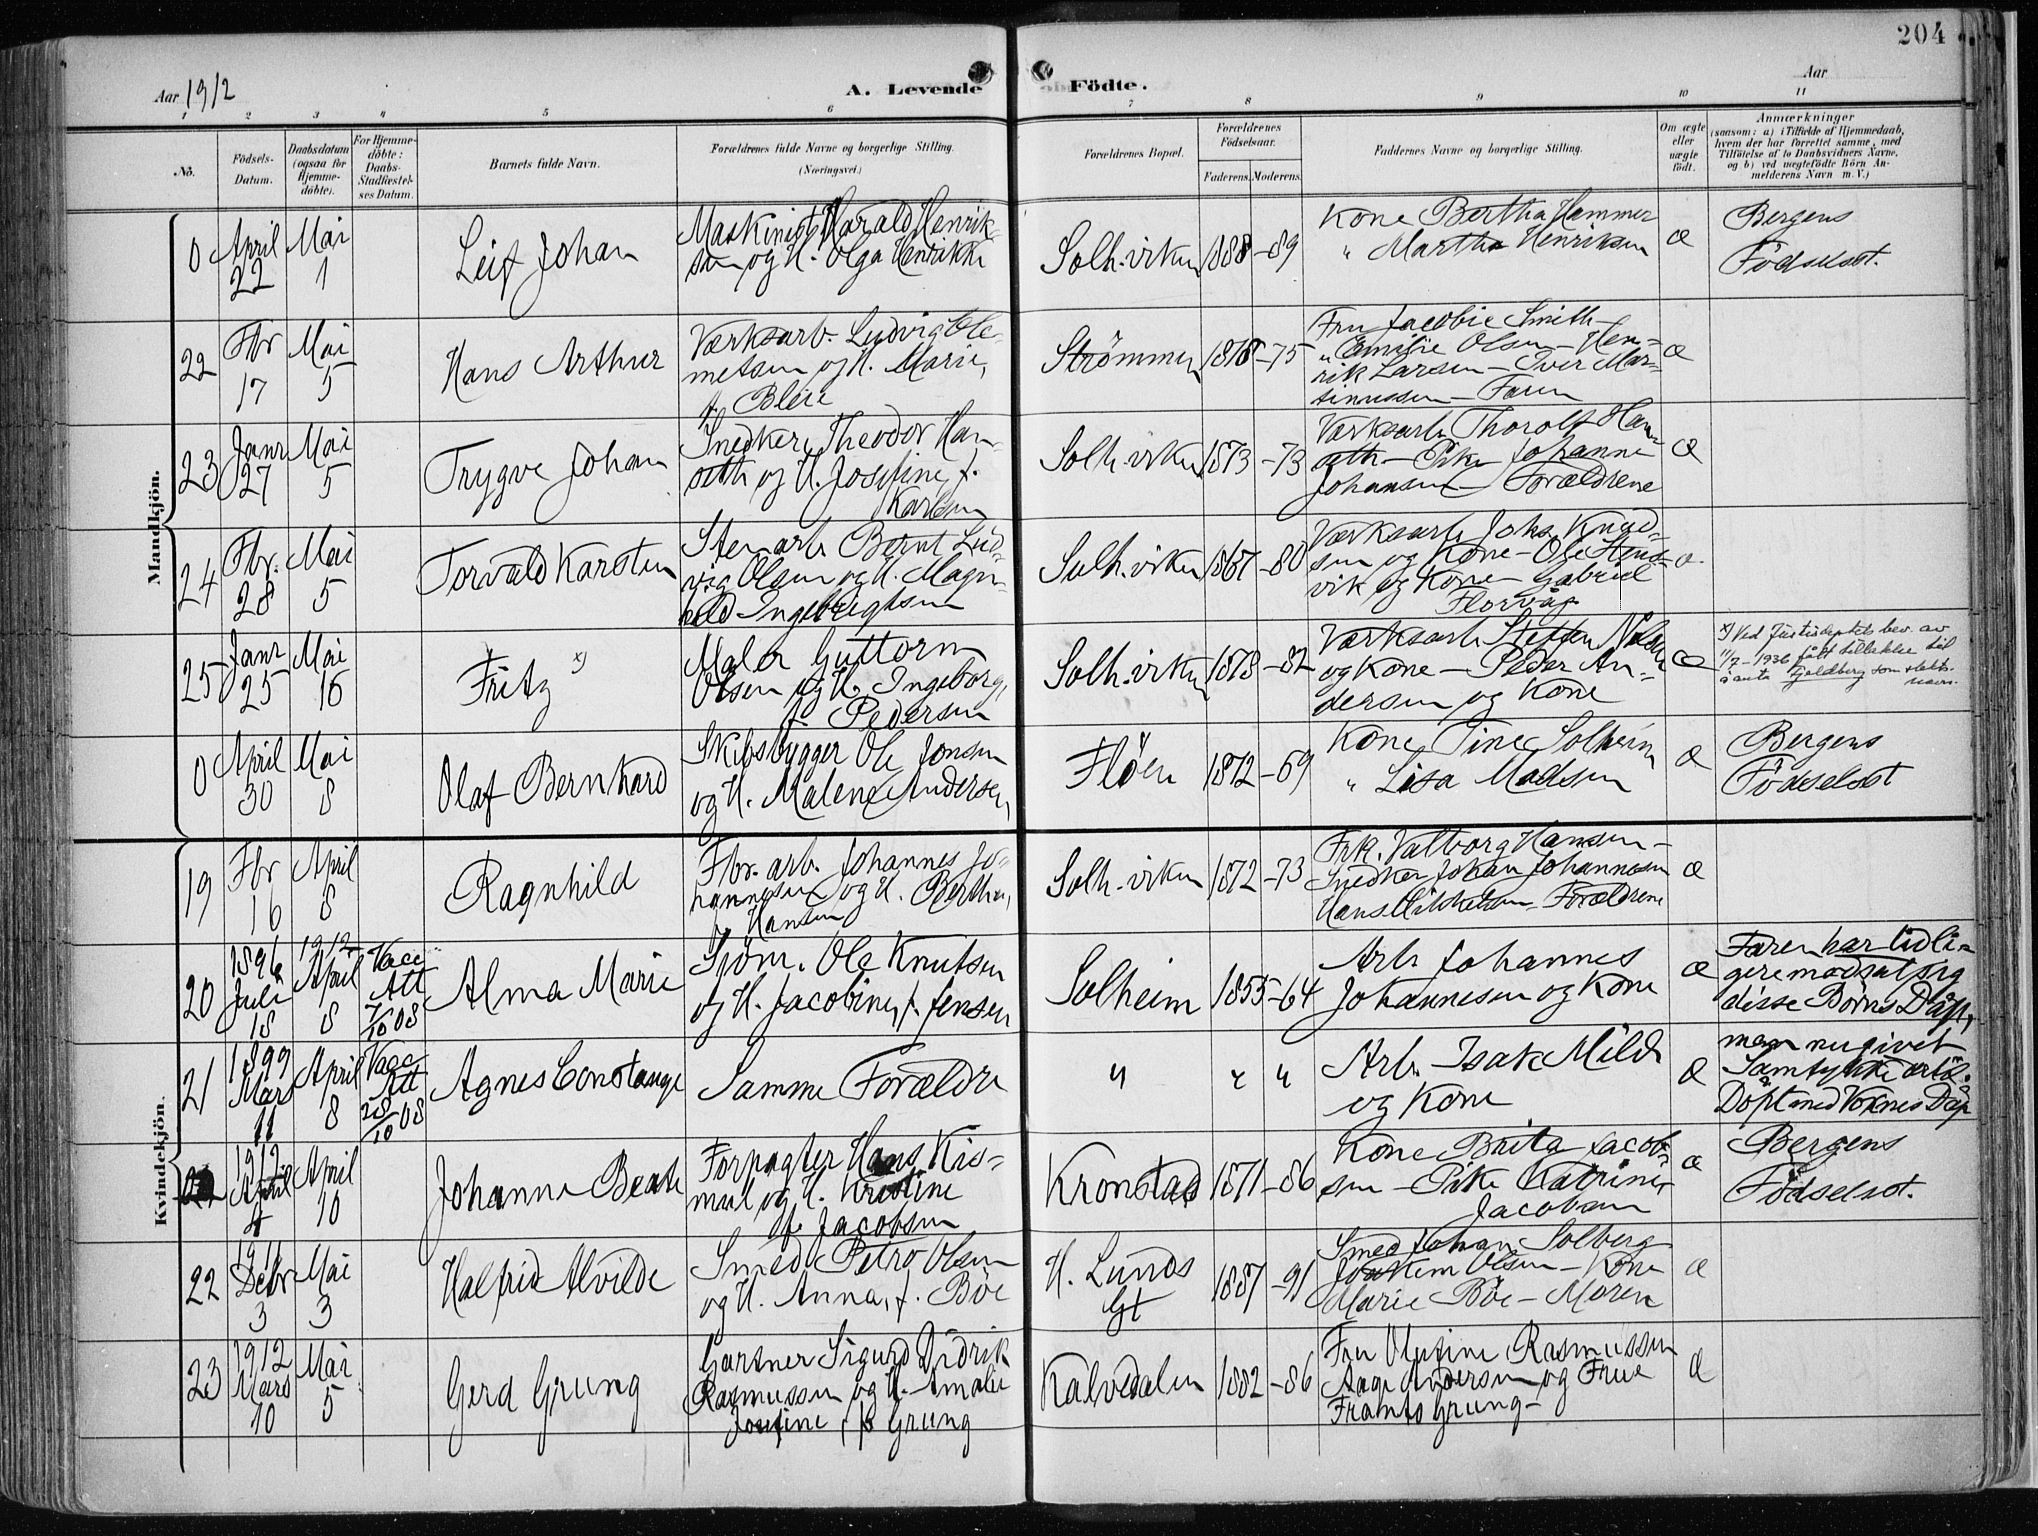 204
Aar 1912
A. Levende
Födte.
Aar
1 2 3 4 5 6 7 8 9 10 11
No.
Födsels-
Datum.
Daabsdatum
(ogsaa for
Hjemme-
döbte).
For Hjemme-
döbte:
Daabs-
Stadfæstel-
ses Datum.
Barnets fulde Navn.
Forældrenes fulde Navne og borgerlige Stilling.
(Næringsvei.)
Forældrenes Bopæl.
Forældrenes
Födselsaar.
Faderens. Moderens.
Faddernes Navne og borgerlige Stilling.
Om ægte
eller
uægte
födt.
Anmærkninger
(saasom: a) i Tilfælde af Hjemmedaab,
hvem der har forrettet samme, med
Tilföielse af to Daabsvidners Navne,
og b) ved uægtefödte Börn An-
melderens Navn m. V.)
Mandkjön.
0
April
22
Mai
1
Leif Johan
Maskinist Harald Henrik-
sen og H. Olga Henrikke
Solh.viken
1888 - 89
Kone Bertha Hammer
" Martha Henriksen
æ
Bergens
Födselsst.
22
Fbr
17
Mai
5
Hans Arthur
Værksarb. Ludvig Cle-
metsen og H. Marie,
f. Bleie
Strømmen
1878 - 75
Fru Jacobie Smith -
" Emilie Olsen - Hen-
rik Larsen - Iver Mar-
tinussen - Faren
æ
23
Janr
27
Mai
5
Trygve Johan
Snedker Theodor Han-
seth og H. Josefine f.
Karlsen
Solh.viken
1873 - 73
Værksarb. Thorolf Han-
seth - Pike Johanne
Johansen - Forældrene
æ
24
Fbr.
28
Mai
5
Torvald Karsten
Stenarb Bernt Lud-
vig Olsen og H. Magn-
hild Ingebrigtsen
Solh.viken
1867 - 80
Værksarb Johs. Knud-
sen og Kone - Ole
vik og Kone - Gabriel
Florvåg
æ
25
Janr
25
Mai
16
Fritz x)
Maler Guttorm
Olsen og H. Ingeborg,
f. Pedersen
Solh.viken
1878 - 82
Værksarb Steffen Nilsen
og Kone - Peder An-
dersen og Kone
æ
x) Ved Justisdeptets bev. av
11/7-1936 fått tillatelse til
å anta Fjeldberg som slekts-
navn.
0
April
30
Mai
8
Olaf Bernhard
Skibsbygger Ole Jonsen
og H. Malene Andersen
Fløen
1872 - 69
Kone Tine Solheim
" Lisa Madsen
æ
Bergens
Födselsst
Kvindekjön.
19
Fbr
16
April
8
Ragnhild
Fbr. arb. Johannes Jo-
hannesen og H. Berthe,
f. Hansen
Solh.viken
1872 - 73
Frk. Valborg Hansen -
Snedker Johan Johannesen
Hans Mikkelsen - Forældrene
æ
20
1896
Juli
18
1912
April
8
Vacc
Att
7/10 08
Alma Marie
Sjöm. Ole Knutsen
og H. Jacobine, f. Jensen
Solheim
1855 - 64
Arb Johannes
Johannesen og Kone
æ
Faren har tidli-
gere modsat sig
disse Børns Dåp,
21
1899
Mars
11
April
8
Vacc
Att
28/10 08
Agnes Constanse
Samme Forældre
" " "
Arb. Isak Milde
og Kone
æ
men nu givet
Samtykke
Døpt med Voxnes Dåp
0
1912
April
4
April
10
Johanne Beate
Forpagter Hans Kis-
mul og H. Kristine
f. Jacobsen
Kronstad
1871 - 86
Kone Brita Jacob-
sen - Pike Katrine
Jacobsen
æ
Bergens
Födselsst.
22
1911
Debr
3
Mai
3
Halfrid Alvilde
Smed Petro Olsen
og H. Anna, f. Böe
H. Lunds
Gt
1887 - 91
Smed Johan Solberg
Joakim Olsen - Kone
Marie Böe - Moren
æ
23
1912
Mars
10
Mai
5
Gerd Grung
Gartner Sigurd Didrik
Rasmussen og H. Amalie
Josefine f. Grung
Kalvedalen
1882 - 86
Fru Olufine Rasmussen
Aage Andersen og Frue
Frants Grung -
æ